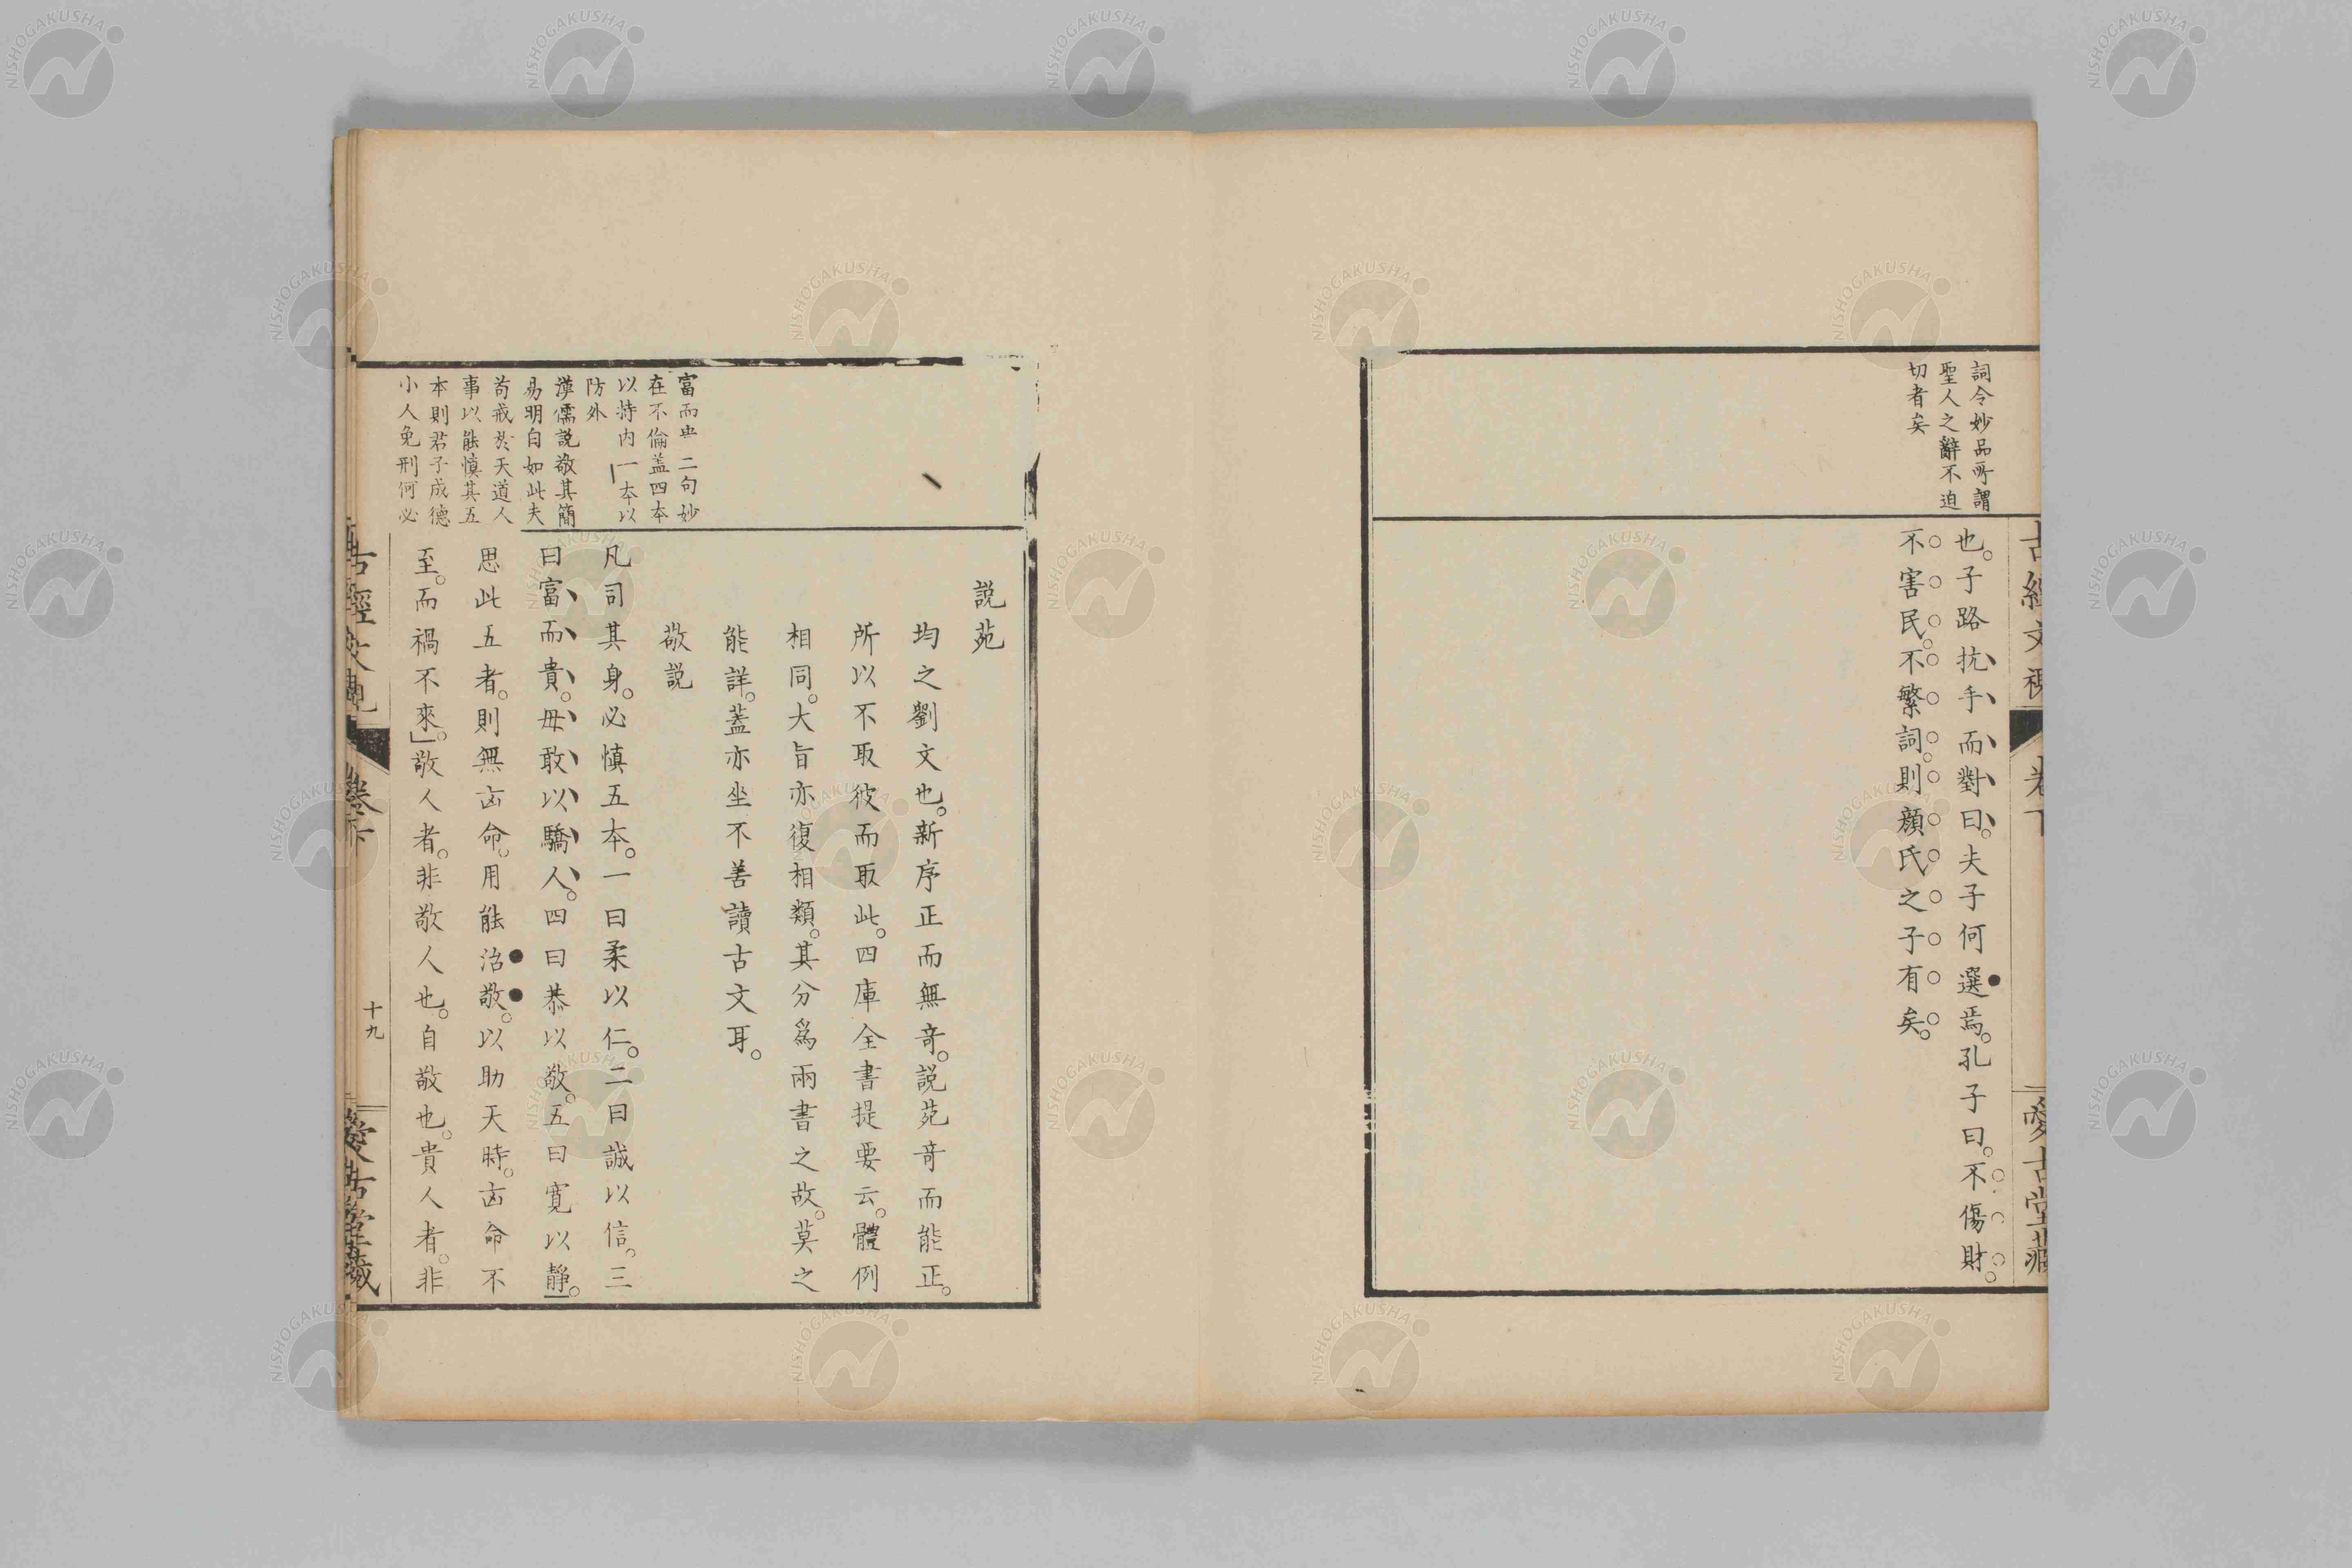 詞令妙品所謂
聖人之辭不迫
切者矣
也。子路抗手而對曰。夫子何選焉。孔子曰。不傷財。
不害民。不繁詞。則顏氏之子有矣。
愛古堂藏
説苑
均之劉文也。新序正而無竒。説苑竒而能正。
所以不取彼而取此。四庫全書提要云。體例
相同。大旨亦復相類。其分爲兩書之故。莫之
能詳。蓋亦坐不善讀古文耳。
敬説
富而
二句妙
在不倫蓋四本
以持内一本以
防外
漢儒説敬其簡
易明白如此夫
苟戒於天道人
事以能慎其五
本則君子成德
小人免刑何必
凡司其身。必慎五本。一曰柔以仁。二曰誠以信。三
曰富而貴。毋敢以驕人。四曰恭以敬。五曰寛以靜。
思此五者。則無凶命。用能治敬。以助天時。凶命不
至。而禍不來。」敬人者。非敬人也。自敬也。貴人者。非
十九
NISHOGAKUSHA